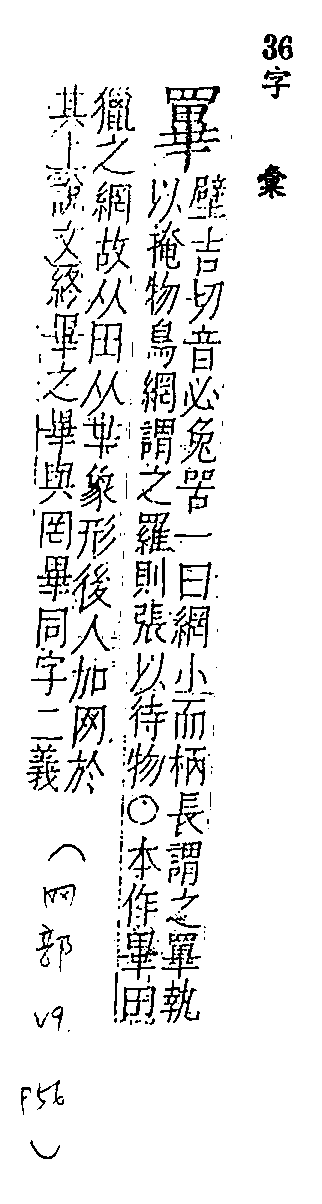 36字彙
罼
壁吉切音必兔罟一曰網小而柄長謂之罼執
以掩物鳥網謂之羅則張以待物○本作畢田
獵之網故从田从𠦒象形後人加网於
其上說文終畢之畢與罔畢同字二義
(网部
v9.
P56
)